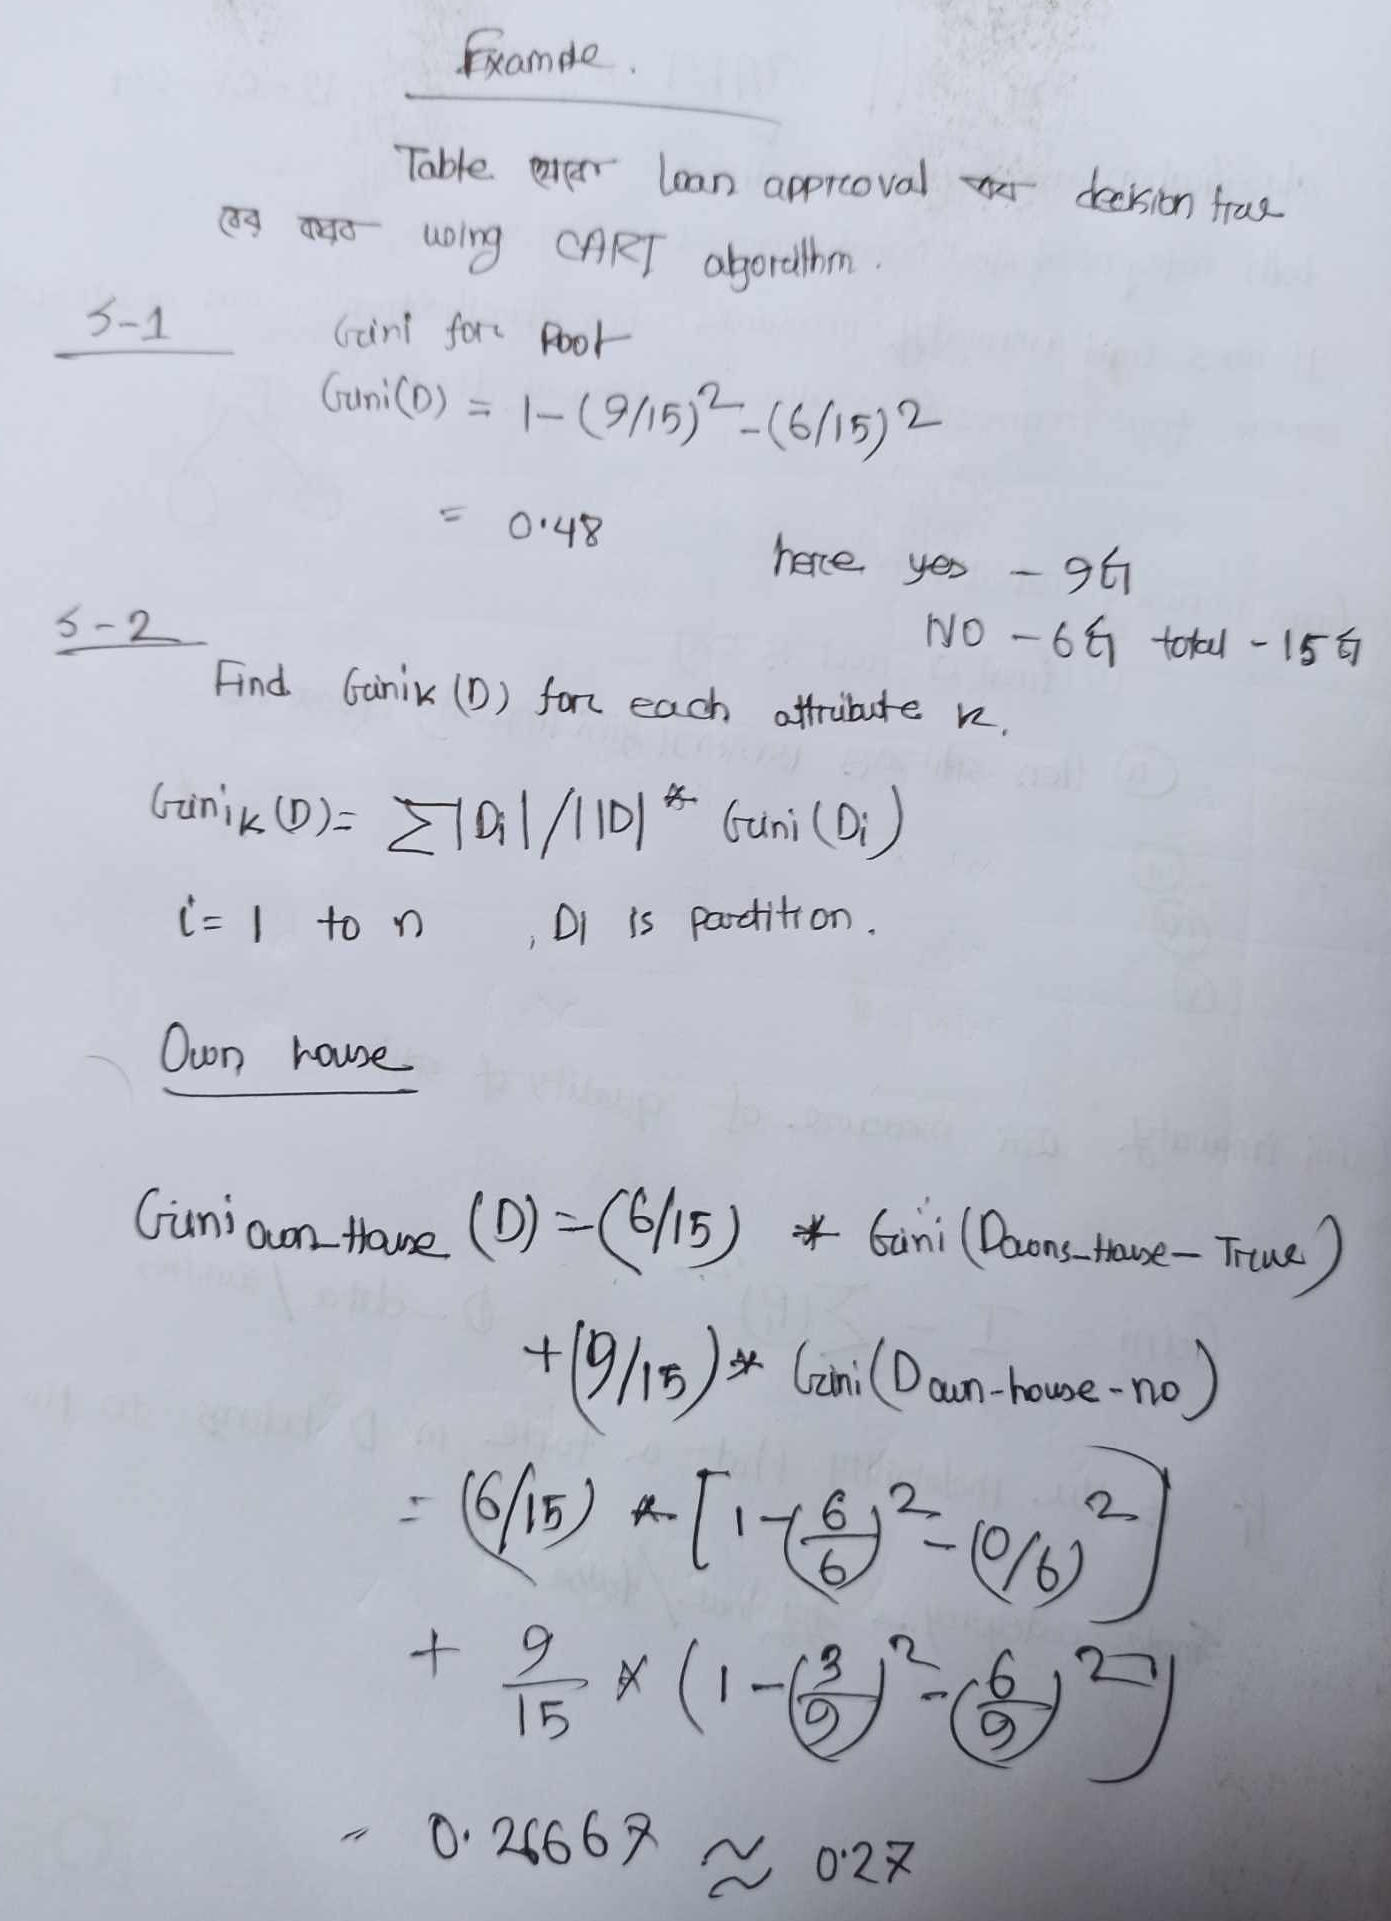 Example.
Table থেকে loan approval করা decision tree
বের করব using CART algorithm.
S-1
Gini for Root
Gini(D) = 1-(9/15)²-(6/15)²
= 0.48
here yes - 9টি
NO - 6টি total - 15টি
S-2
Find Ginik (D) for each attribute k.
Ginik (D)= Σ|Di|/||D| * Gini (Di)
i= 1 to n , Di is partition.
Own house
Gini own_House (D) = (6/15) * Gini (Downs_House_True)
+(9/15)* Gini(Down-house-no)
= (6/15) * [1-(6/6)²-(0/6)²]
+ 9/15 × (1-(3/9)²-(6/9)²]
= 0.26667 ≈ 0.27